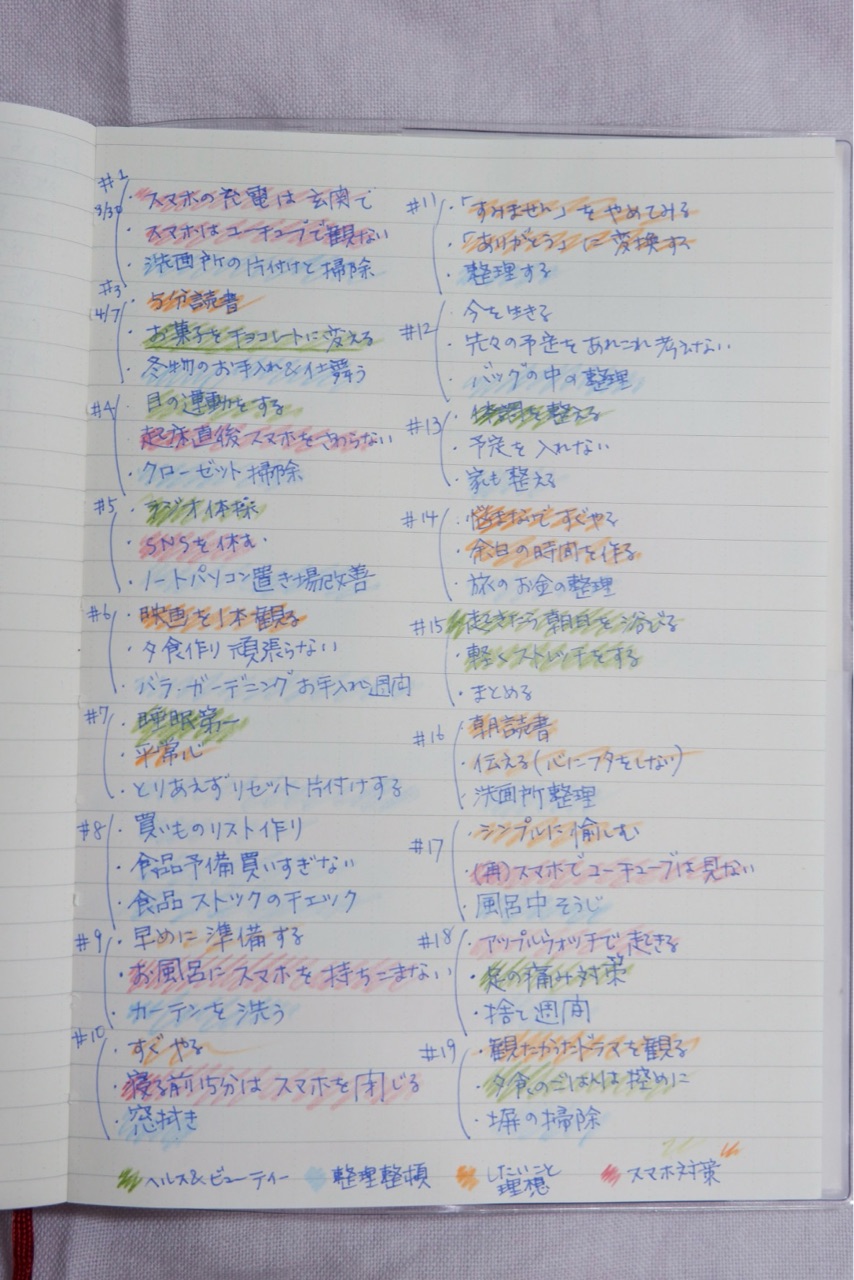 #1
3/30
・スマホの充電は玄関で
・スマホはユーチューブで観ない
・洗面所の片付けと掃除
#3
4/7
・5分読書
・お菓子をチョコレートに変える
・冬物のお手入れ&仕舞う
#4
・目の運動をする
・起床直後スマホをさわらない
・クローゼット掃除
#5
・ラジオ体操
・SNSを休む
・ノートパソコン置き場改善
#6
・映画を1本観る
・夕食作り頑張らない
・バラ・ガーデニングお手入れ週間
#7
・睡眠第一
・平常心
・とりあえずリセット片付けする
#8
・買いものリスト作り
・食品予備買いすぎない
・食品ストックのチェック
#9
・早めに準備する
・お風呂にスマホを持ちこまない
・カーテンを洗う
#10
・すぐやる
・寝る前15分はスマホを閉じる
・窓拭き
#11
・「すみません」をやめてみる
・「ありがとう」に変換する
・整理する
#12
・今を生きる
・先々の予定をあれこれ考えない
・バッグの中の整理
#13
・体調を整える
・予定を入れない
・家も整える
#14
・悩まないですぐやる
・余白の時間を作る
・旅のお金の整理
#15
・起きたら朝日を浴びる
・軽くストレッチをする
・まとめる
#16
・朝読書
・伝える(心にフタをしない)
・洗面所整理
#17
・シンプルに愉しむ
・(再)スマホでユーチューブは見ない
・風呂中そうじ
#18
・アップルウォッチで起きる
・足の痛み対策
・捨て週間
#19
・観たかったドラマを観る
・夕食のごはんは控めに
・塀の掃除
ヘルス&ビューティー
整理整頓
したいこと
理想
スマホ対策